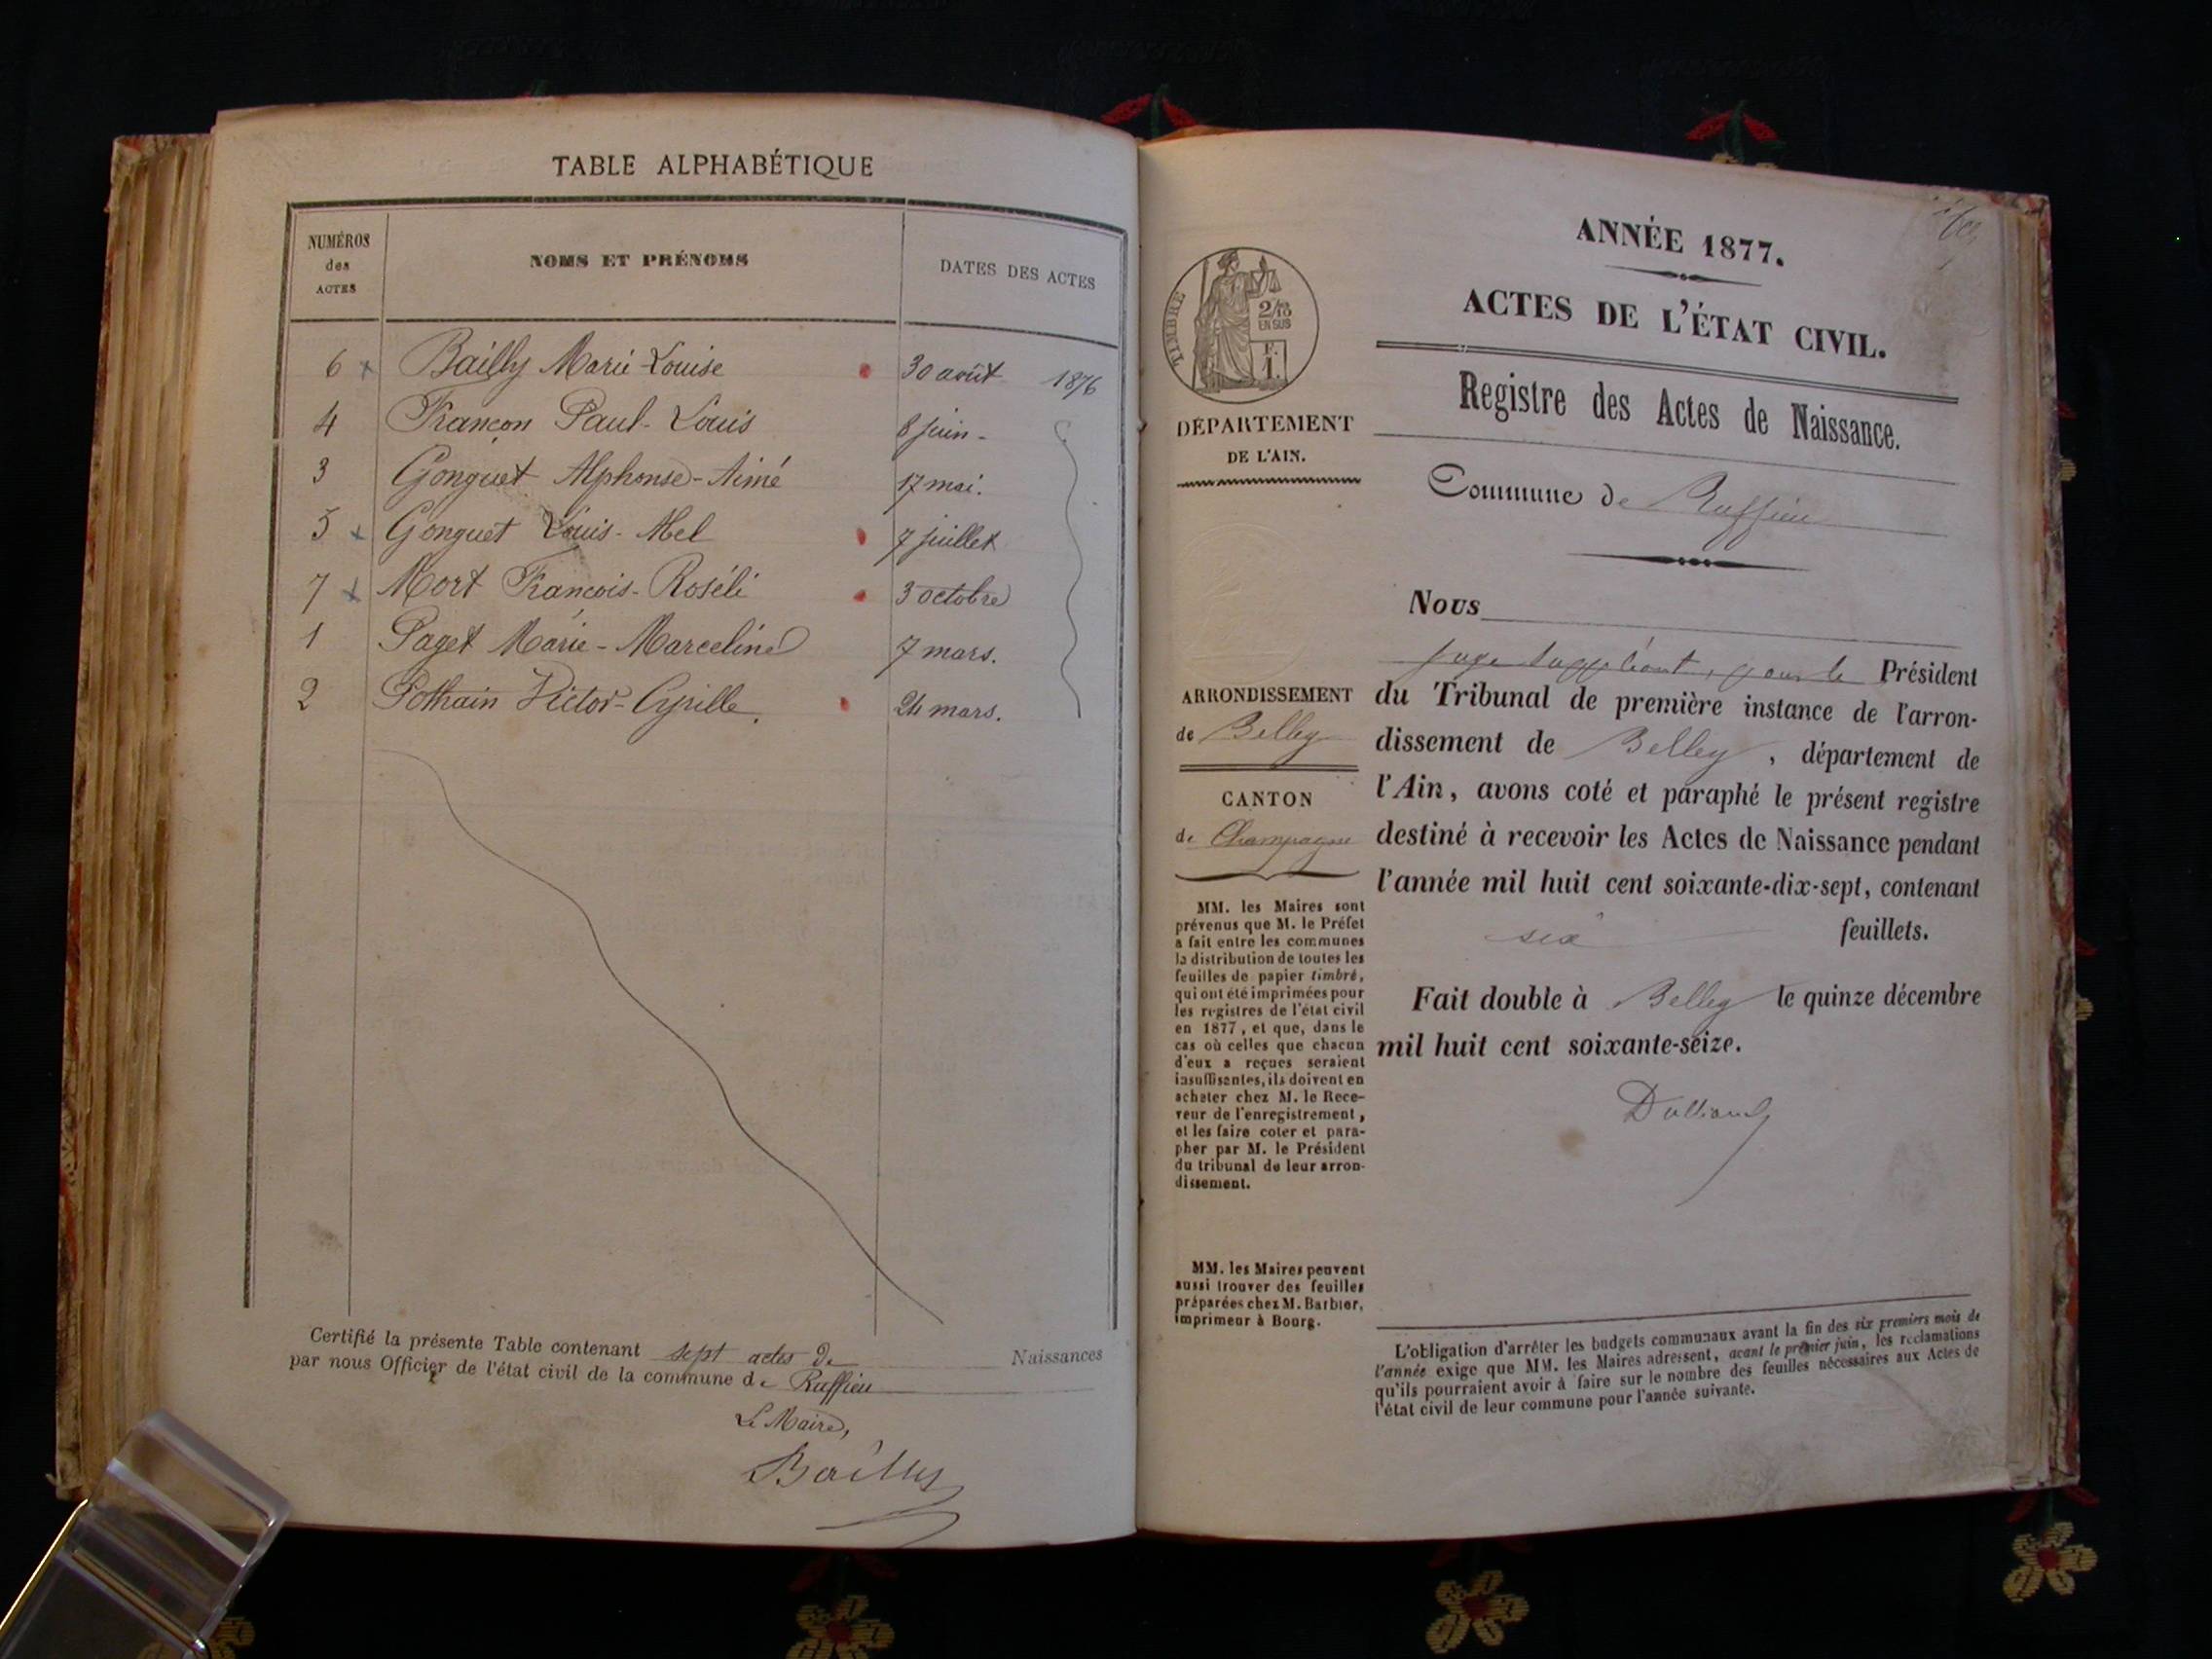 TABLE ALPHABÉTIQUE
NUMÉROS
des
ACTES
NOMS ET PRÉNOMS
DATES DES ACTES
6 Bailly Marie-Louise 30 août 1876
4 Françon Paul-Louis 8 juin -
3 Gonguet Alphonse-Aimé 17 mai.
5 Gonguet Louis-Abel 7 juillet
7 Mort François-Roséli 3 octobre
1 Paget Marie-Marceline 7 mars.
2 Pothain Victor-Cyrille. 24 mars.
Certifié la présente Table contenant sept actes de Naissances
par nous Officier de l'état civil de la commune de Ruffieu
Le Maire,
Bailly
ANNÉE 1877.
ACTES DE L'ÉTAT CIVIL.
Registre des Actes de Naissance.
Commune de Ruffieu
TIMBRE
2/10
EN SUS
F.
1.
DÉPARTEMENT
DE L'AIN.
ARRONDISSEMENT
de Belley
CANTON
de Champagne
MM. les Maires sont
prévenus que M. le Préfet
a fait entre les communes
la distribution de toutes les
feuilles de papier timbré,
qui ont été imprimées pour
les registres de l'état civil
en 1877, et que, dans le
cas où celles que chacun
d'eux a reçues seraient
insuffisantes, ils doivent en
acheter chez M. le Rece-
veur de l'enregistrement,
et les faire coter et para-
pher par M. le Président
du tribunal de leur arron-
dissement.
MM. les Maires peuvent
aussi trouver des feuilles
préparées chez M. Barbier,
imprimeur à Bourg.
Nous
juge suppléant, pour le Président
du Tribunal de première instance de l'arron-
dissement de Belley, département de
l'Ain, avons coté et paraphé le présent registre
destiné à recevoir les Actes de Naissance pendant
l'année mil huit cent soixante-dix-sept, contenant
six feuillets.
Fait double à Belley le quinze décembre
mil huit cent soixante-seize.
L'obligation d'arrêter les budgets communaux avant la fin des six premiers mois de
l'année exige que MM. les Maires adressent, avant le premier juin, les réclamations
qu'ils pourraient avoir à faire sur le nombre des feuilles nécessaires aux Actes de
l'état civil de leur commune pour l'année suivante.